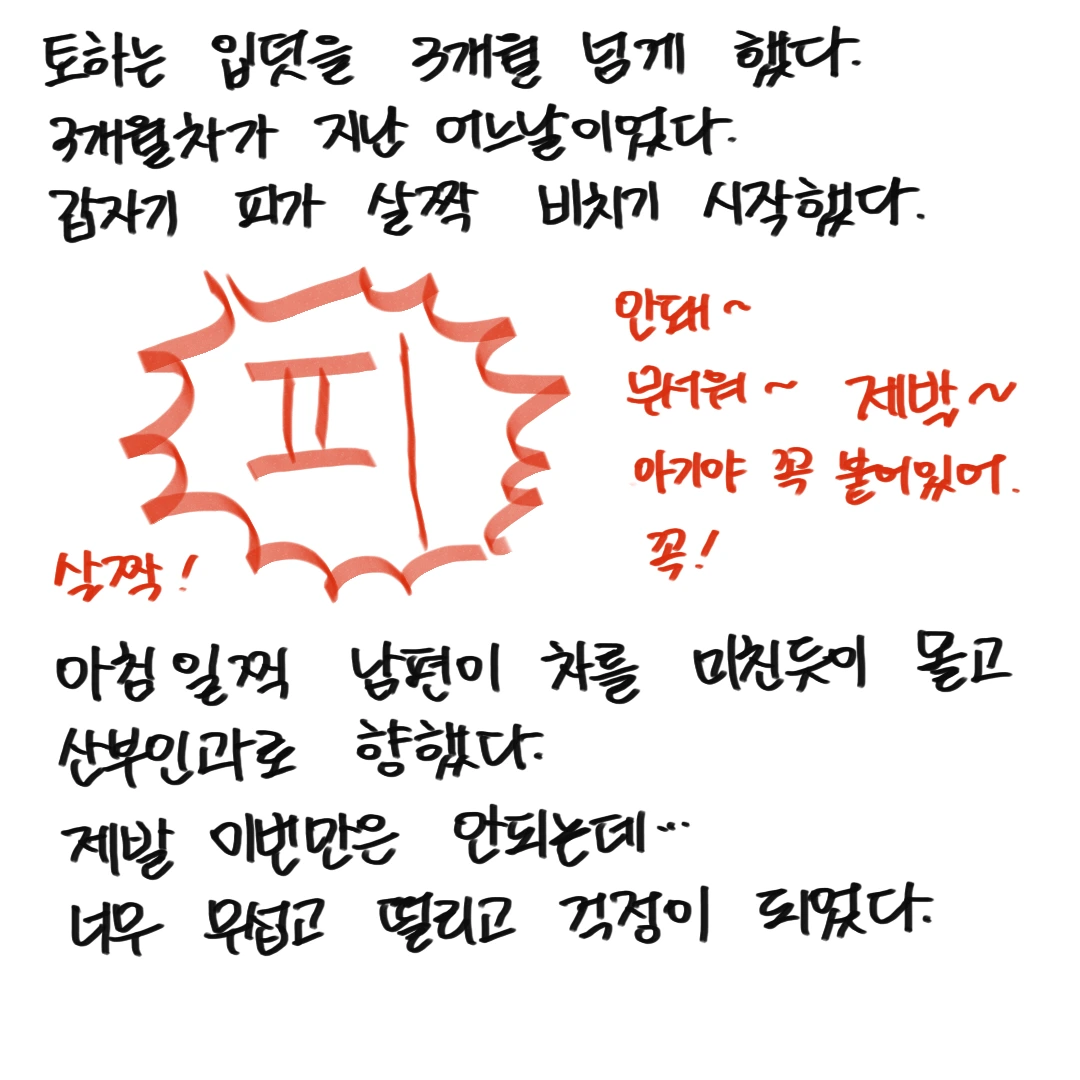 토하는 입덧을 3개월 넘게 했다.
3개월차가 지난 어느날이었다.
갑자기 피가 살짝 비치기 시작했다.
피
안돼~
무서워~ 제발~
아기야 꼭 붙어있어.
꼭!
살짝!
아침 일찍 남편이 차를 미친듯이 몰고
산부인과로 향했다.
제발 이번만은 안되는데...
너무 무섭고 떨리고 걱정이 되었다.